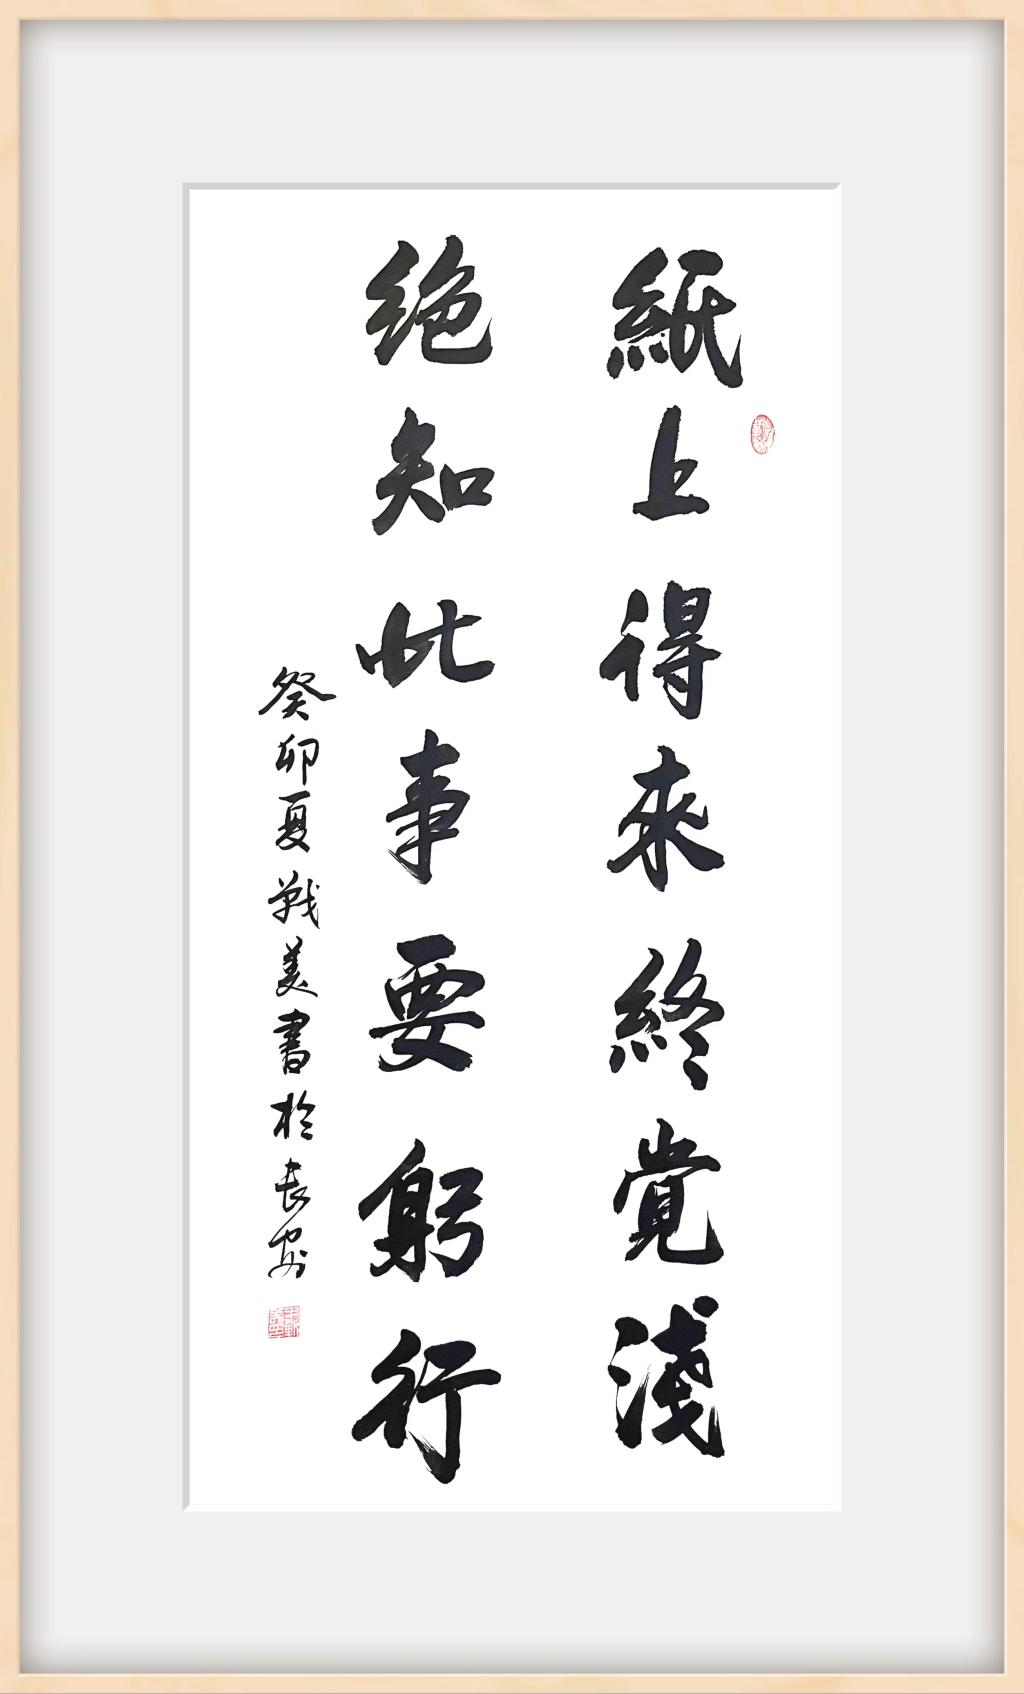 紙上得來終覺淺
绝知此事要躬行
癸卯夏戰美書於長安